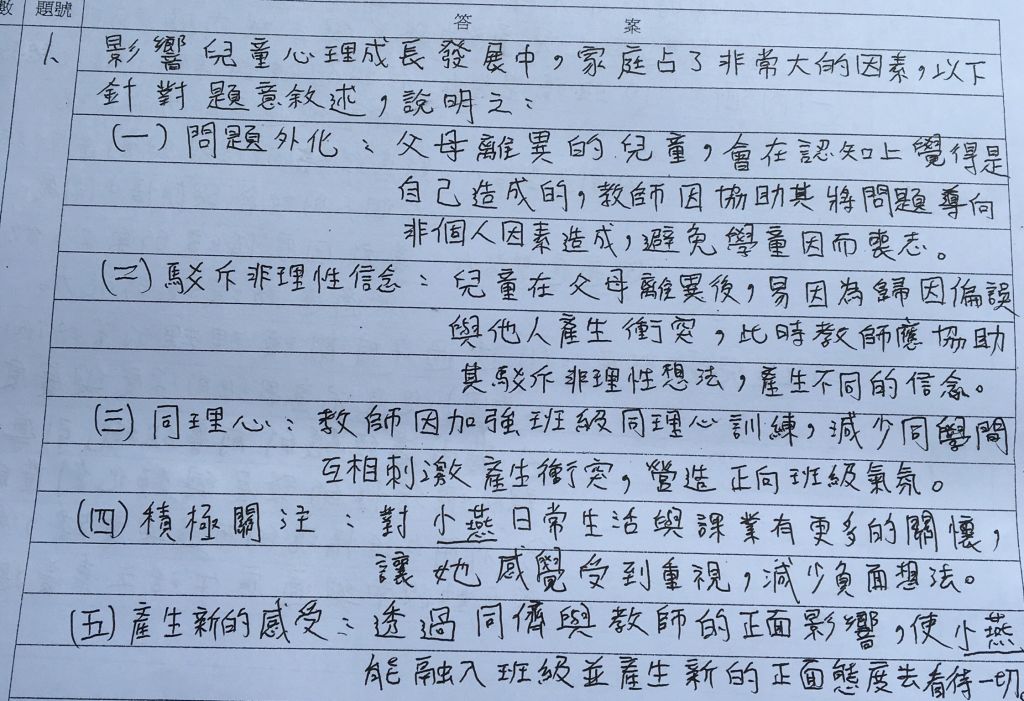 數 題號 答案
1. 影響兒童心理成長發展中，家庭占了非常大的因素，以下
針對題意敘述，說明之：
(一)問題外化：父母離異的兒童，會在認知上覺得是
自己造成的，教師因協助其將問題導向
非個人因素造成，避免學童因而喪志。
(二)駁斥非理性信念：兒童在父母離異後，易因為歸因偏誤
與他人產生衝突，此時教師應協助
其駁斥非理性想法，產生不同的信念。
(三)同理心：教師因加強班級同理心訓練，減少同學間
互相刺激產生衝突，營造正向班級氣氛。
(四)積極關注：對小燕日常生活與課業有更多的關懷，
讓她感覺受到重視，減少負面想法。
(五)產生新的感受：透過同儕與教師的正面影響，使小燕
能融入班級並產生新的正面態度去看待一切。